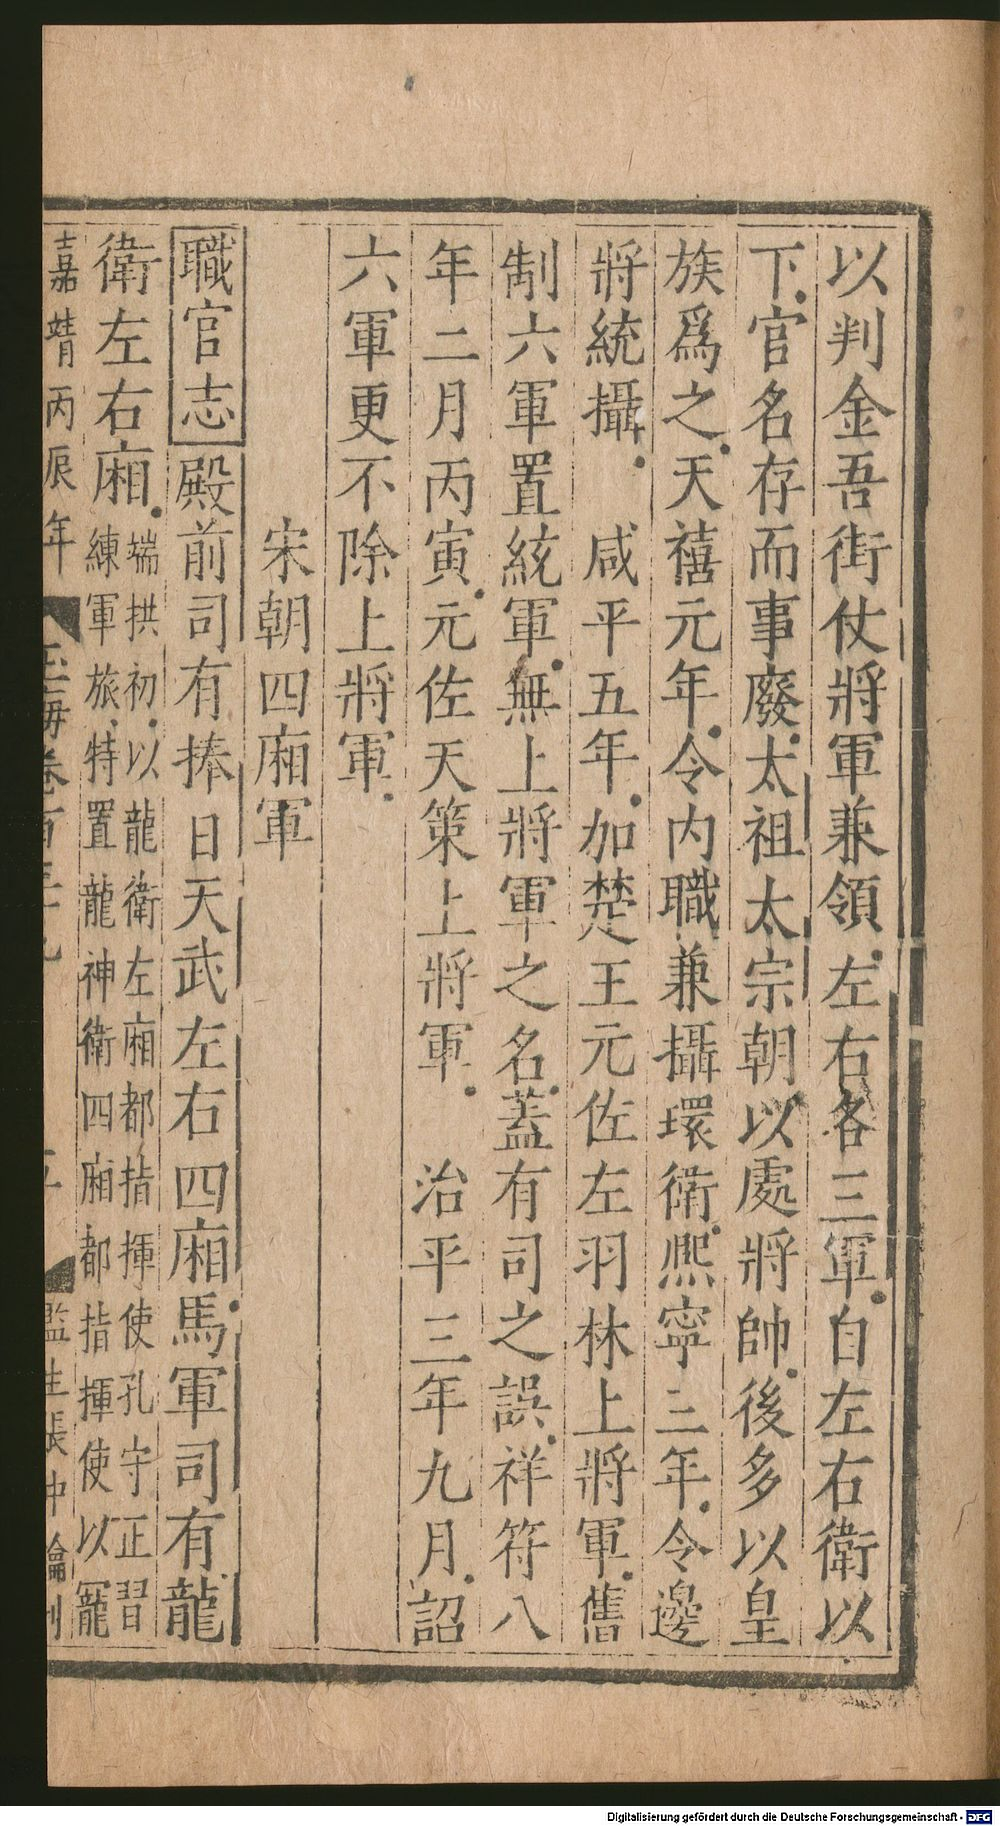 以判金吾街仗將軍兼領左右各三軍自左右衛以
下官名存而事廢太祖太宗朝以處將帥後多以皇
族爲之天禧元年令内職兼攝環衛熈寧三年令邊
將統攝　咸平五年加楚王元佐左羽林上將軍舊
制六軍置統軍無上將軍之名蓋有司之誤祥符八
年二月丙寅元佐天策上將軍　治平三年九月詔
六軍更不除上將軍
宋朝四廂軍
職官志殿前司有捧日天武左右四廂馬軍司有龍
衛左右廂
端拱初以龍衛左廂都指揮使孔守正習
練軍旅特置龍神衛四廂都指揮使以寵
嘉靖丙辰年　玉海卷百三十九　監生張中綸刊
Digitalisierung gefördert durch die Deutsche Forschungsgemeinschaft - DFG